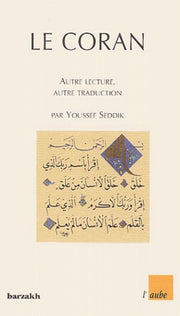 LE CORAN
AUTRE LECTURE,
AUTRE TRADUCTION
PAR YOUSSEF SEDDIK
بسم الله الرحمن الرحيم
اقرأ باسم ربك الذي
خلق خلق الانسان من علق
اقرأ وربك الاكرم الذي علم
بالقلم علم الانسان ما لم يعلم
barzakh
l'aube